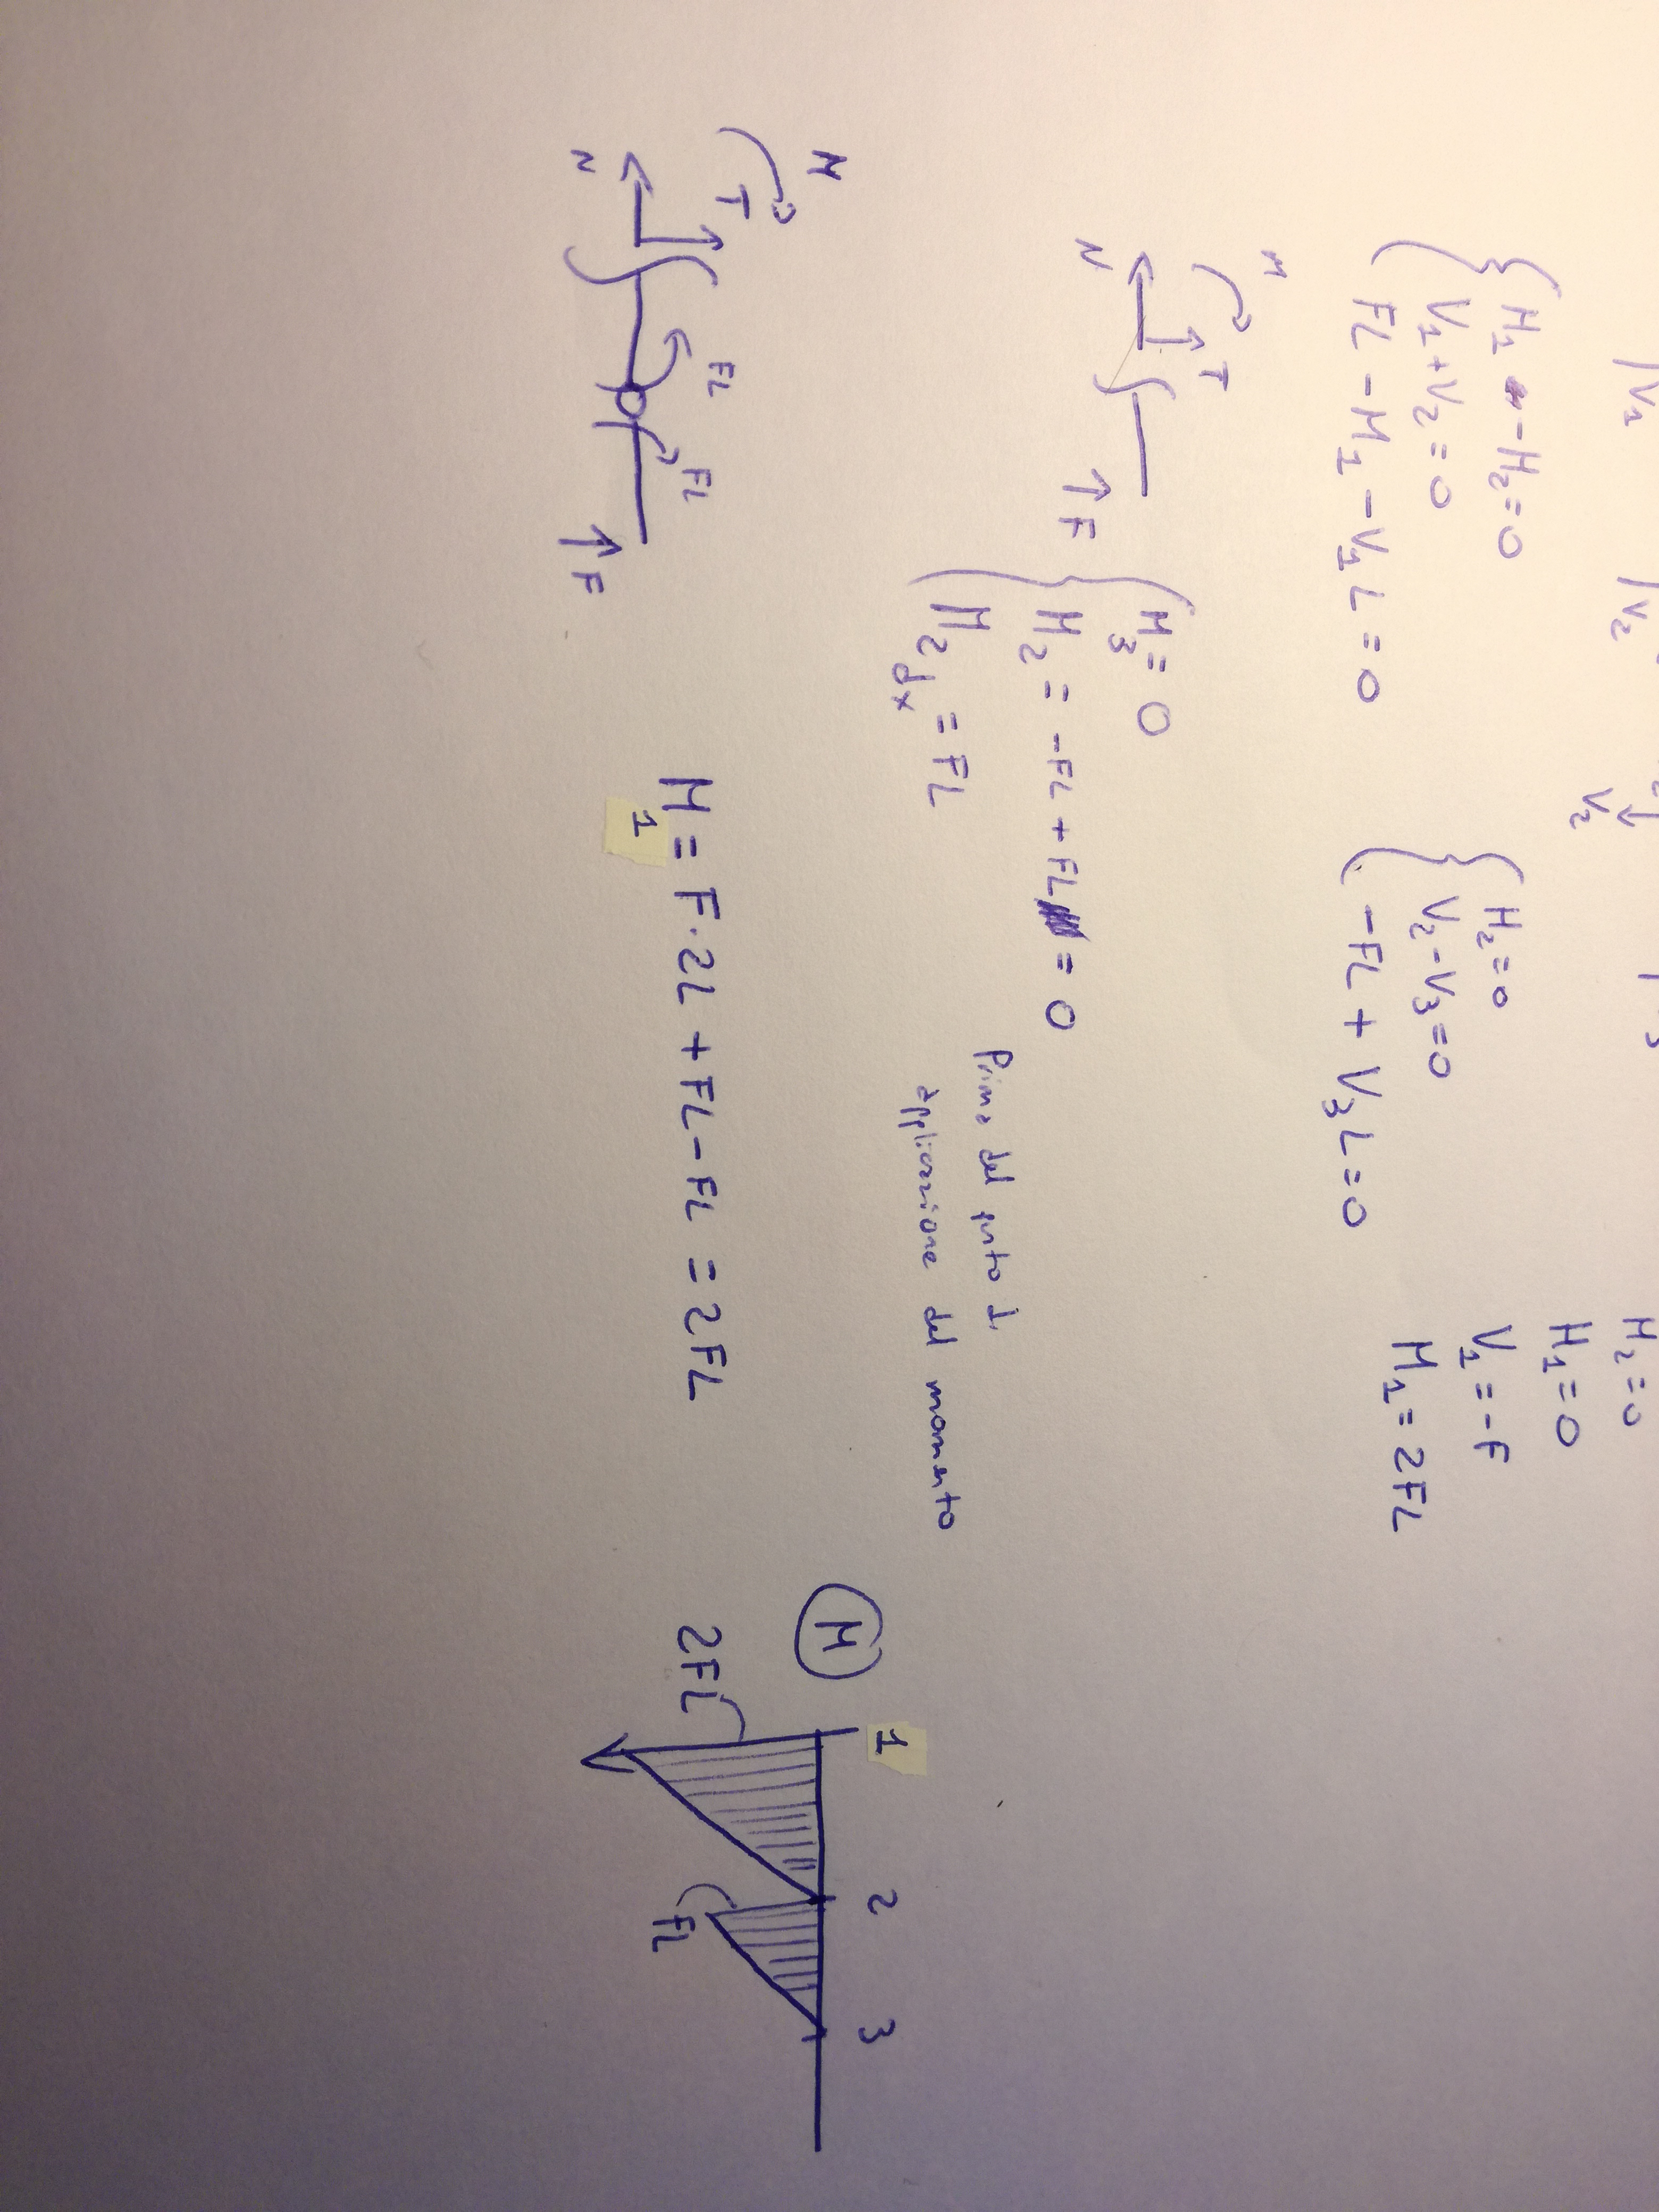 V₁ V₂
V₂
H₁ - H₂ = 0
V₁ + V₂ = 0
FL - M₁ - V₁L = 0
H₂ = 0
V₂ - V₃ = 0
-FL + V₃L = 0
H₂ = 0
H₁ = 0
V₁ = -F
M₁ = 2FL
M
T
N
F
M₃ = 0
M₂ = -FL + FL = 0
M₂dx = FL
Prima del punto di
applicazione del momento
M
T
N
FL
FL
F
M₁ = F·2L + FL - FL = 2FL
M
1 2 3
2FL
FL